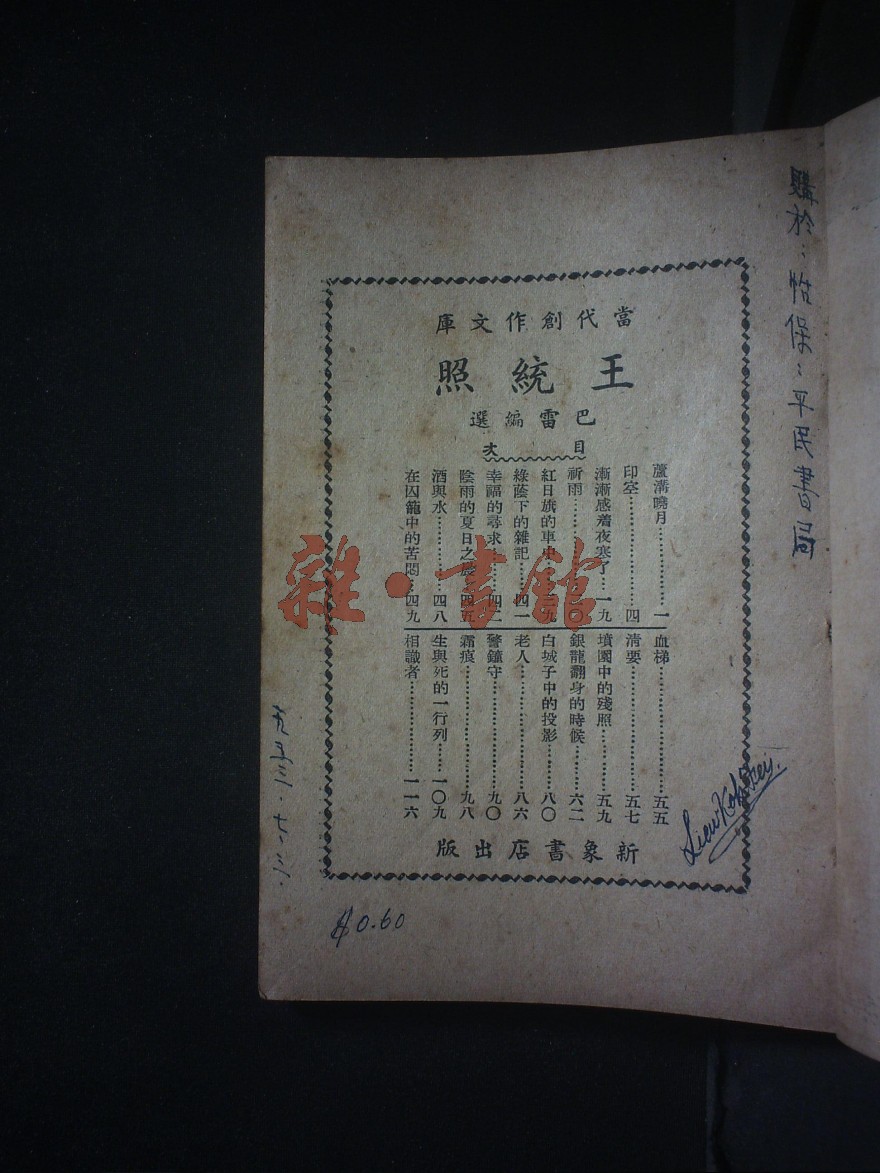 購於：怡保：平民書局
當代創作文庫
王統照
巴雷編選
目次
蘆溝曉月…………………一
印空…………………四
漸漸感着夜寒了…一九
祈雨
紅日旗的車史
綠蔭下的雜記……四一
幸福的尋求……四二
陰雨的夏日之晨…四五
酒與水…………四八
在囚籠中的苦悶…四九
血梯…………………五五
清要…………………五七
墳園中的殘照……五九
銀龍翻身的時候……六二
白城子中的投影……八〇
老人…………………八六
警鐘守…………………九〇
霜痕…………………九八
生與死的一行列……一〇九
相識者…………………一一六
新象書店出版
$0.60
雜·書館